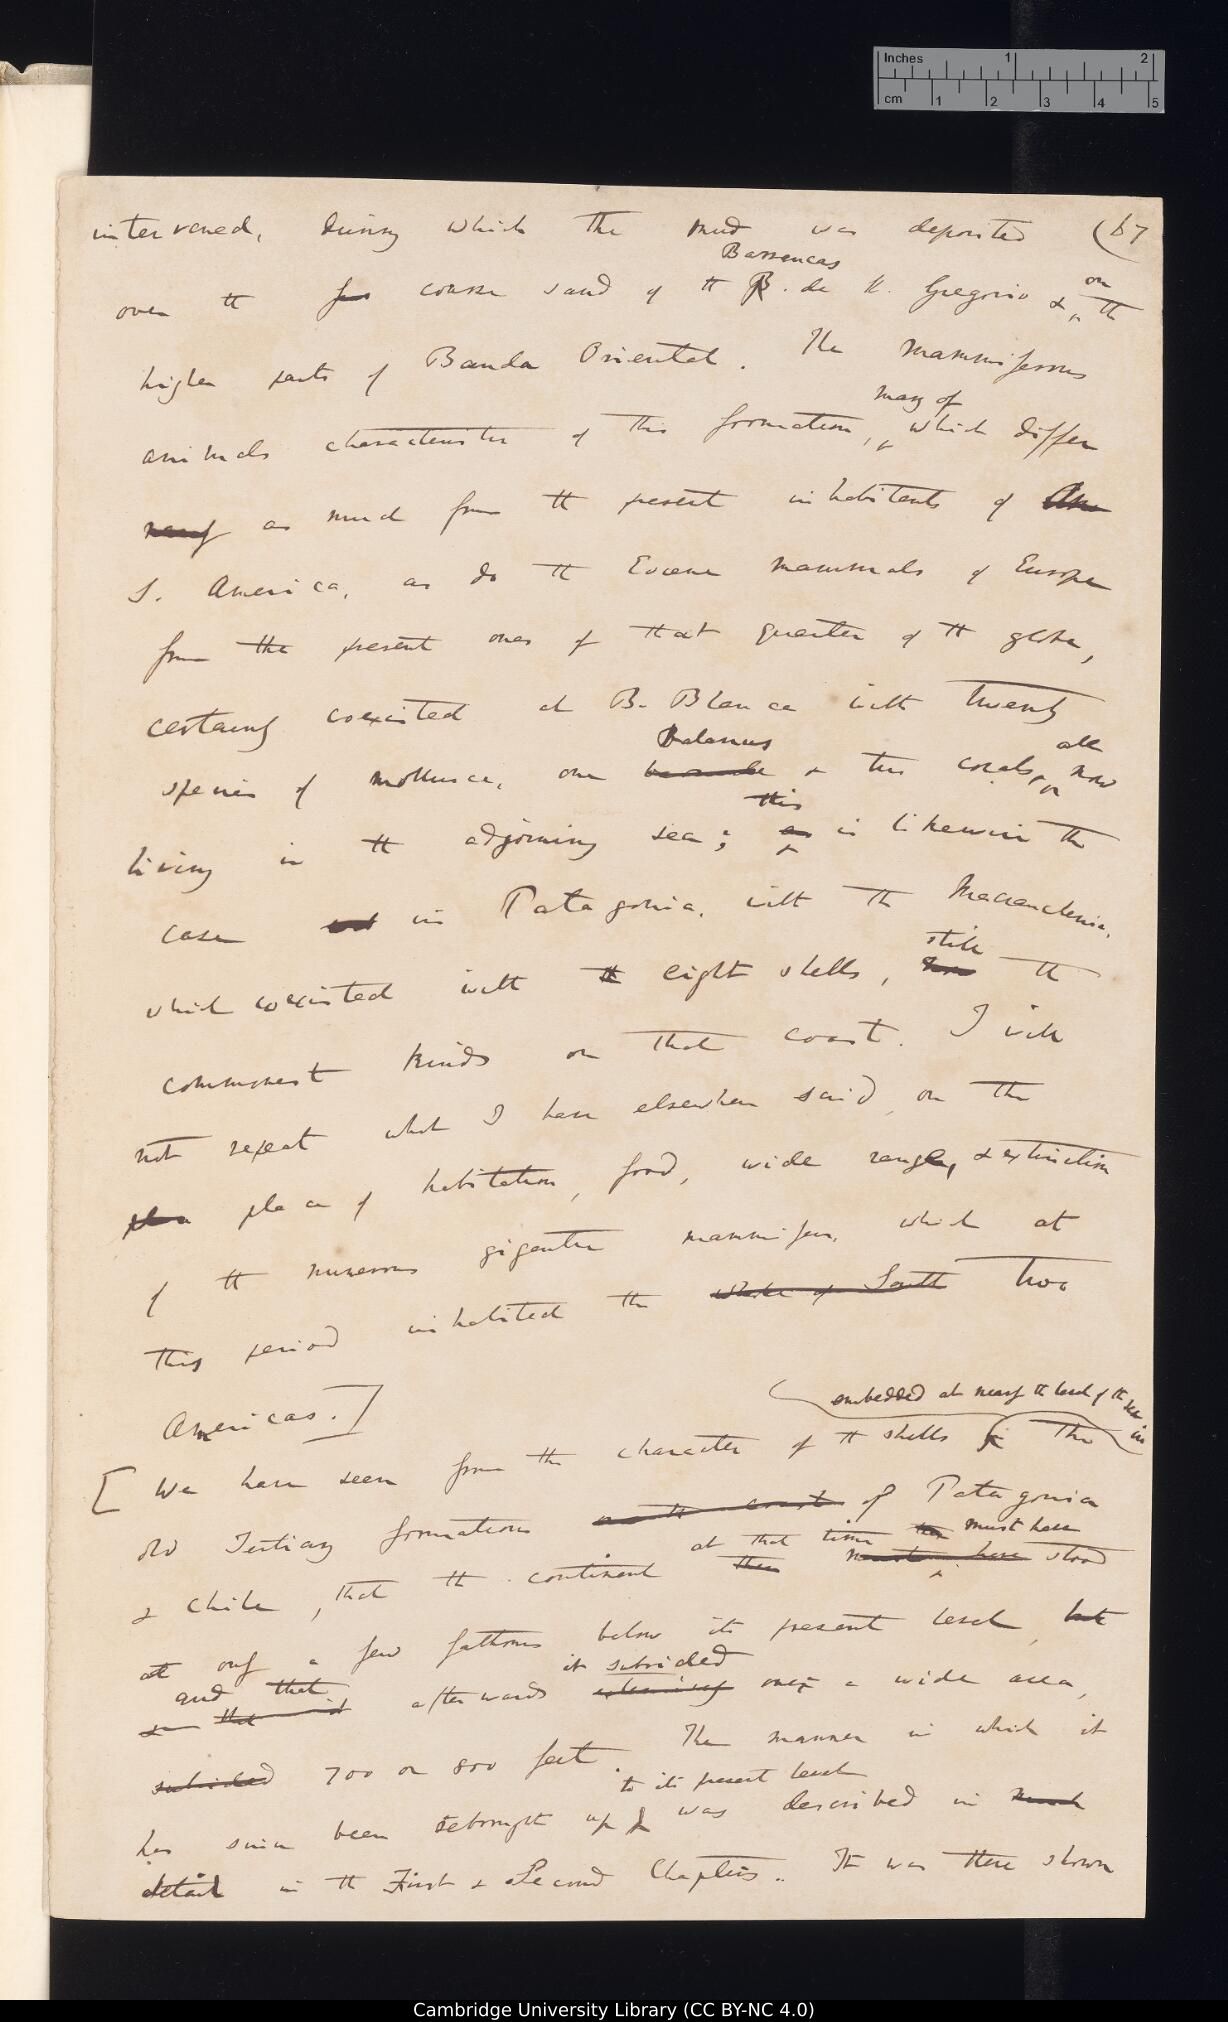 Inches 1 2
cm 1 2 3 4 5
intervened, during which the mud was deposited (67
Barrancas
on
over the coarse sand of the B. de S. Gregorio & the
higher parts of Banda Oriental. The mammiferous
many of
animals characteristic of this formation, which differ
nearly as much from the present inhabitants of
S. America, as do the Eocene mammals of Europe
from the present ones of that quarter of the globe,
certainly coexisted at B. Blanca with twenty
Balanus
all
species of mollusca, one barnacle & two corals, now
this
living in the adjoining sea; as is likewise the
case in Patagonia, with the Macrauchenia,
still
which coexisted with the eight shells, the
commonest kinds on that coast. I will
not repeat what I have elsewhere said, on the
place place of habitation, food, wide range, & extinction
of the numerous gigantic mammifers, which at
this period inhabited the whole of South two
Americas.]
embedded at nearly the level of the sea in
[We have seen from the character of the shells in the
old Tertiary formations on the coast of Patagonia
at that time must have
& Chile, that the continent then must have stood
at only a few fathoms below its present level, but
and that it subsided
that afterwards over a wide area,
subsided 700 or 800 feet. The manner in which it
to its present level
has since been rebrought up was described in much
detail in the First & Second Chapters. It was there shown
Cambridge University Library (CC BY-NC 4.0)